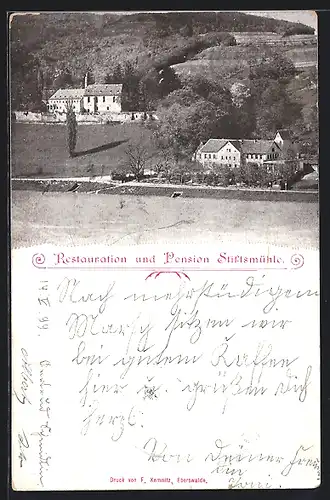 Restauration und Pension Stiftsmühle.
Nach mehrstündigem
Marsch sitzen wir
bei gutem Kaffee
hier u. grüßen Dich
herzl.
Von Deiner
Druck von F. Kemnitz, Eberswalde.
14. V. 99.